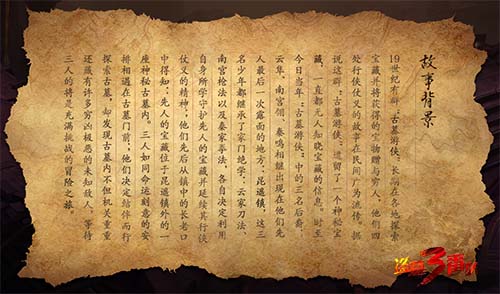 故事背景
19世纪有群“古墓游侠”长期在各地探索
宝藏并将获得的宝物赠与穷人，他们四
处行侠仗义的故事在民间广为流传。据
说这群“古墓游侠”遗留了一个神秘宝
藏，一直都无人知晓宝藏的信息。时至
今日当年“古墓游侠”中的三名后裔，
云隼、南宫翎、秦鸣相继出现在他们先
人最后一次露面的地方：昆遁镇，这三
名少年都继承了家门绝学，云家刀法、
南宫枪法以及秦家拳法，各自决定利用
自身所学守护先人的宝藏并延续其行侠
仗义的精神，他们先后从镇中的长老口
中得知，先人的宝藏位于昆遁镇外的一
座神秘古墓内。三人如同命运刻意的安
排相遇在古墓门前，他们决定结伴而行
探索古墓，却发现古墓内不但机关重重
还藏有许多穷凶极恶的未知敌人，等待
三人的将是充满挑战的冒险之旅。
3番